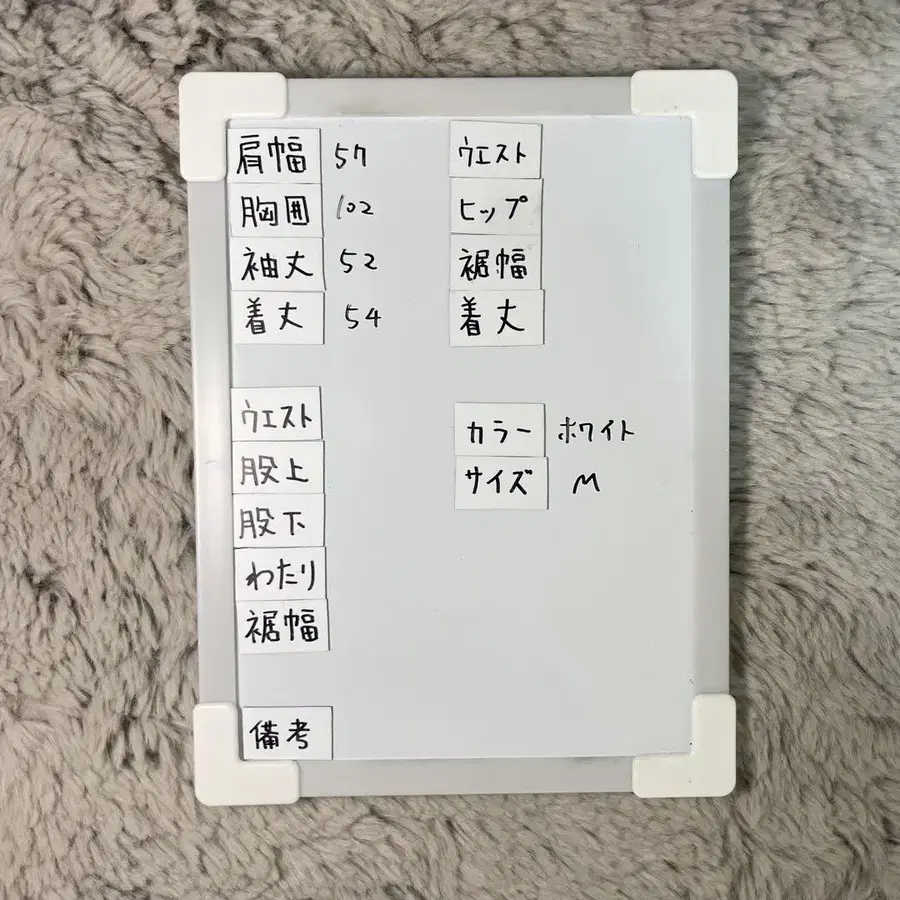 肩幅 57
胸囲 102
袖丈 52
着丈 54
ウエスト
ヒップ
裾幅
着丈
ウエスト
股上
股下
わたり
裾幅
カラー ホワイト
サイズ M
備考